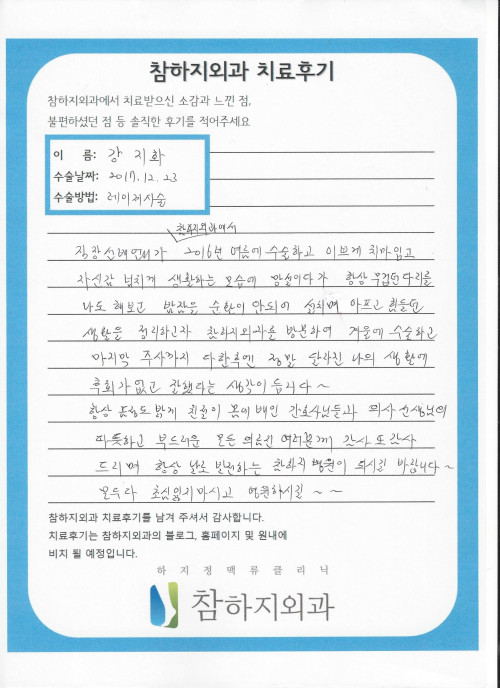 참하지외과 치료후기
참하지외과에서 치료받으신 소감과 느낀 점,
불편하셨던 점 등 솔직한 후기를 적어주세요
이 름: 강 지화
수술날짜: 2017. 12. 23
수술방법: 레이저시술
참하지외과에서
직장선배언니가 2016년 여름에 수술하고 이쁘게 치마입고
자신감 넘치게 생활하는 모습에 망설이다가 항상 무겁던 다리를
나도 해보고 밤잠을 순환이 안되어 설치며 아프고 힘들던
생활을 정리하고자 참하지외과를 방문하여 겨울에 수술하고
마지막 주사까지 다한후엔 정말 달라진 나의 생활에
후회가 없고 잘했다는 생각이 듭니다~
항상 표정도 밝게 친절이 몸에 배인 간호사님들과 의사선생님의
따뜻하고 부드러운 모든 의료진 여러분께 감사 또 감사
드리며 항상 날로 발전하는 참하지 병원이 되시길 바랍니다~
모두다 초심잃지마시고 영원하시길~~
참하지외과 치료후기를 남겨 주셔서 감사합니다.
치료후기는 참하지외과의 블로그, 홈페이지 및 원내에
비치 될 예정입니다.
하지정맥류클리닉
참하지외과